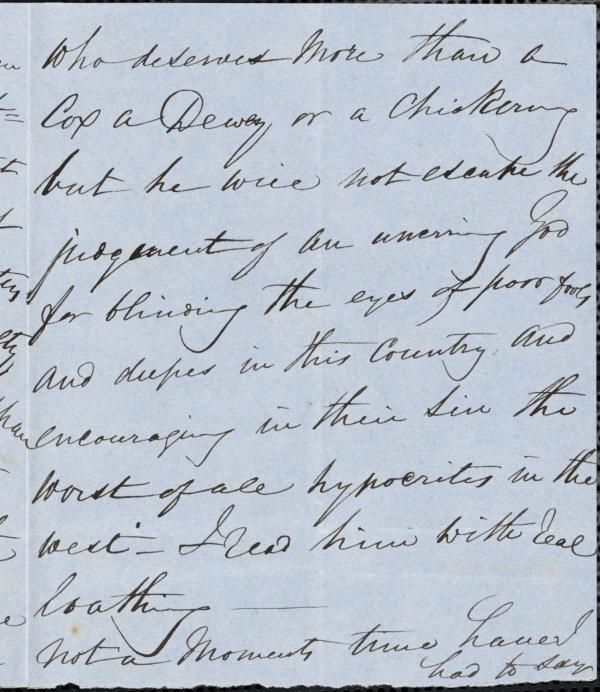 who deserves more than a
Cox a Dewey or a Chickering
but he will not escape the
judgement of an unerring God
for blinding the eyes of poor fools
and dupes in this country and
encouraging in their sin the
worst of all hypocrites in the
west - I read him with real
loathing —
not a moments time have I
had to say